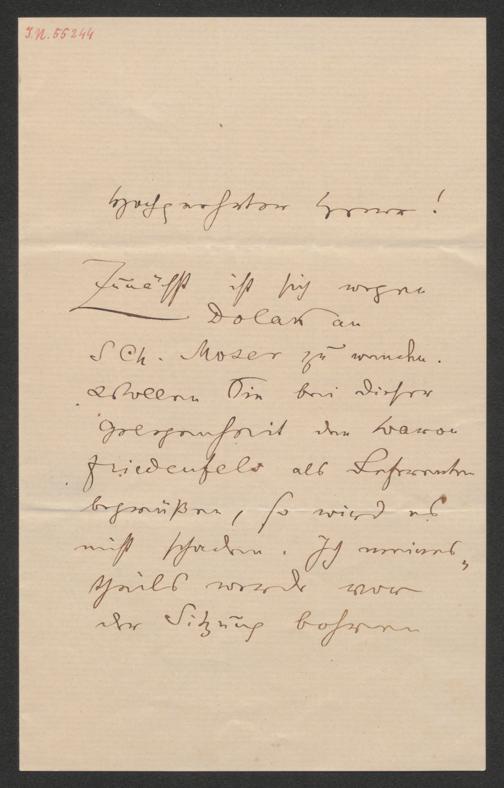 I.N. 55244
Hochgeehrter Herr!
Zunächst ist sich wegen
Dolak an
SCh. Moser zu wenden.
Wollen Sie bei dieser
Gelegenheit den Baron
Friedenfels als Referenten
begrüßen, so wird es
nicht schaden. Ich meines-
theils werde vor
der Sitzung bohren